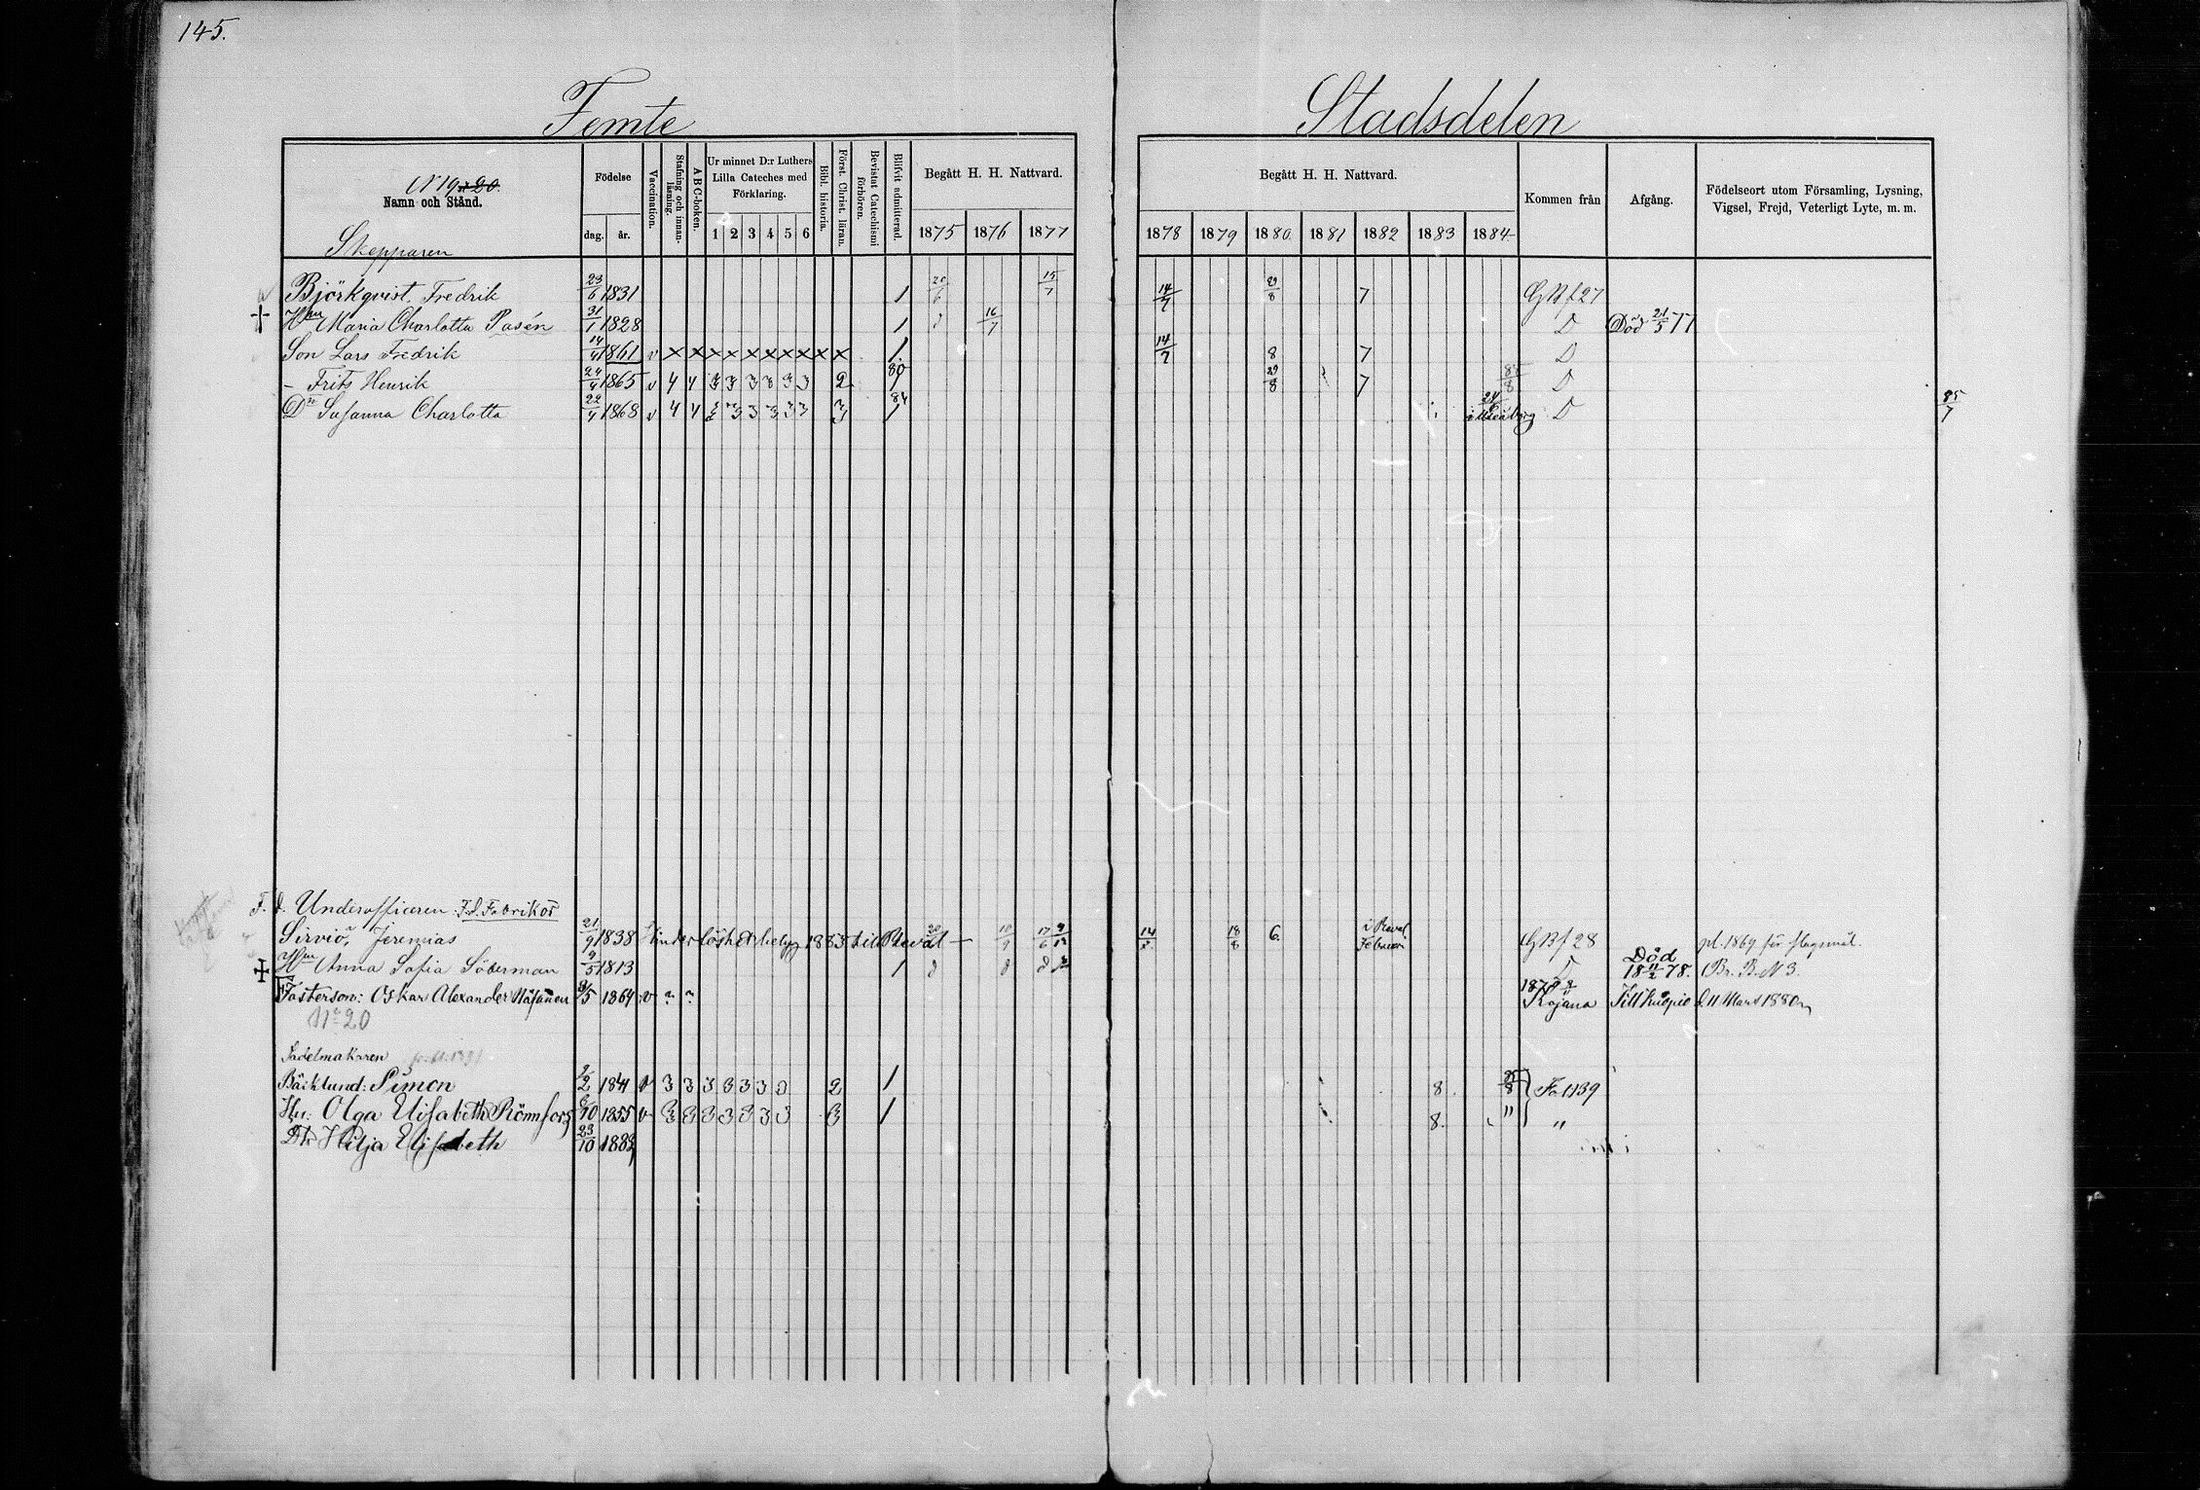 145.
Femte Stadsdelen
N 19 o 20.
Namn och Stånd.
Födelse
dag. år.
Vaccination.
Stafning och innanläsning.
A B C-boken.
Ur minnet D:r Luthers Lilla Cateches med Förklaring.
1 2 3 4 5 6
Bibl. historia.
Först. Christ. läran.
Bevistat Catechismi förhören.
Blifvit admitterad.
Begått H. H. Nattvard.
1875 1876 1877
Begått H. H. Nattvard.
1878 1879 1880 1881 1882 1883 1884
Kommen från
Afgång.
Födelseort utom Församling, Lysning, Vigsel, Frejd, Veterligt Lyte, m. m.
Skepparen
Björkqvist, Fredrik 23/6 1831 1 20/6 15/7 14/7 29/8 7 27
Hun Maria Charlotta Pasén 31/1 1828 1 16/7 D Död 21/5 77
Son Lars Fredrik 14/4 1861 v x x x x x x x x x x 1 14/7 8 7 D
– Frits Henrik 24/4 1865 v 4 4 3 3 3 3 3 3 2 80 1 29/8 7 D
Dr Susanna Charlotta 22/4 1868 v 4 4 3 3 3 3 3 3 3 84 1 D 85/7
F. d. Underofficeren F.d. Fabrikör
Sirviö, Jeremias 21/9 1838 Hinderlöshetsbetyg 1883 till Reval 14 18/8 6. i Reval 28 pl. 1869 för slagsmål.
Hun Anna Sofia Söderman 9/5 1813 1 D Död 18 11/2 78. Br. B. N 3.
Fosterson: Oskar Alexander Näsänen 8/5 1864 v ? ? Kajana Till Kuopio d. 11 Mars 1880
No 20
Sadelmakaren
Bäcklund: Simon 1841 v 3 3 3 3 3 3 3 2 1 8. 85/8 1139
Hu: Olga Elisabeth Rönnfors 1855 v 3 3 3 3 3 3 3 3 1 8. " "
Dr Hilja Elisabeth 23/10 1883